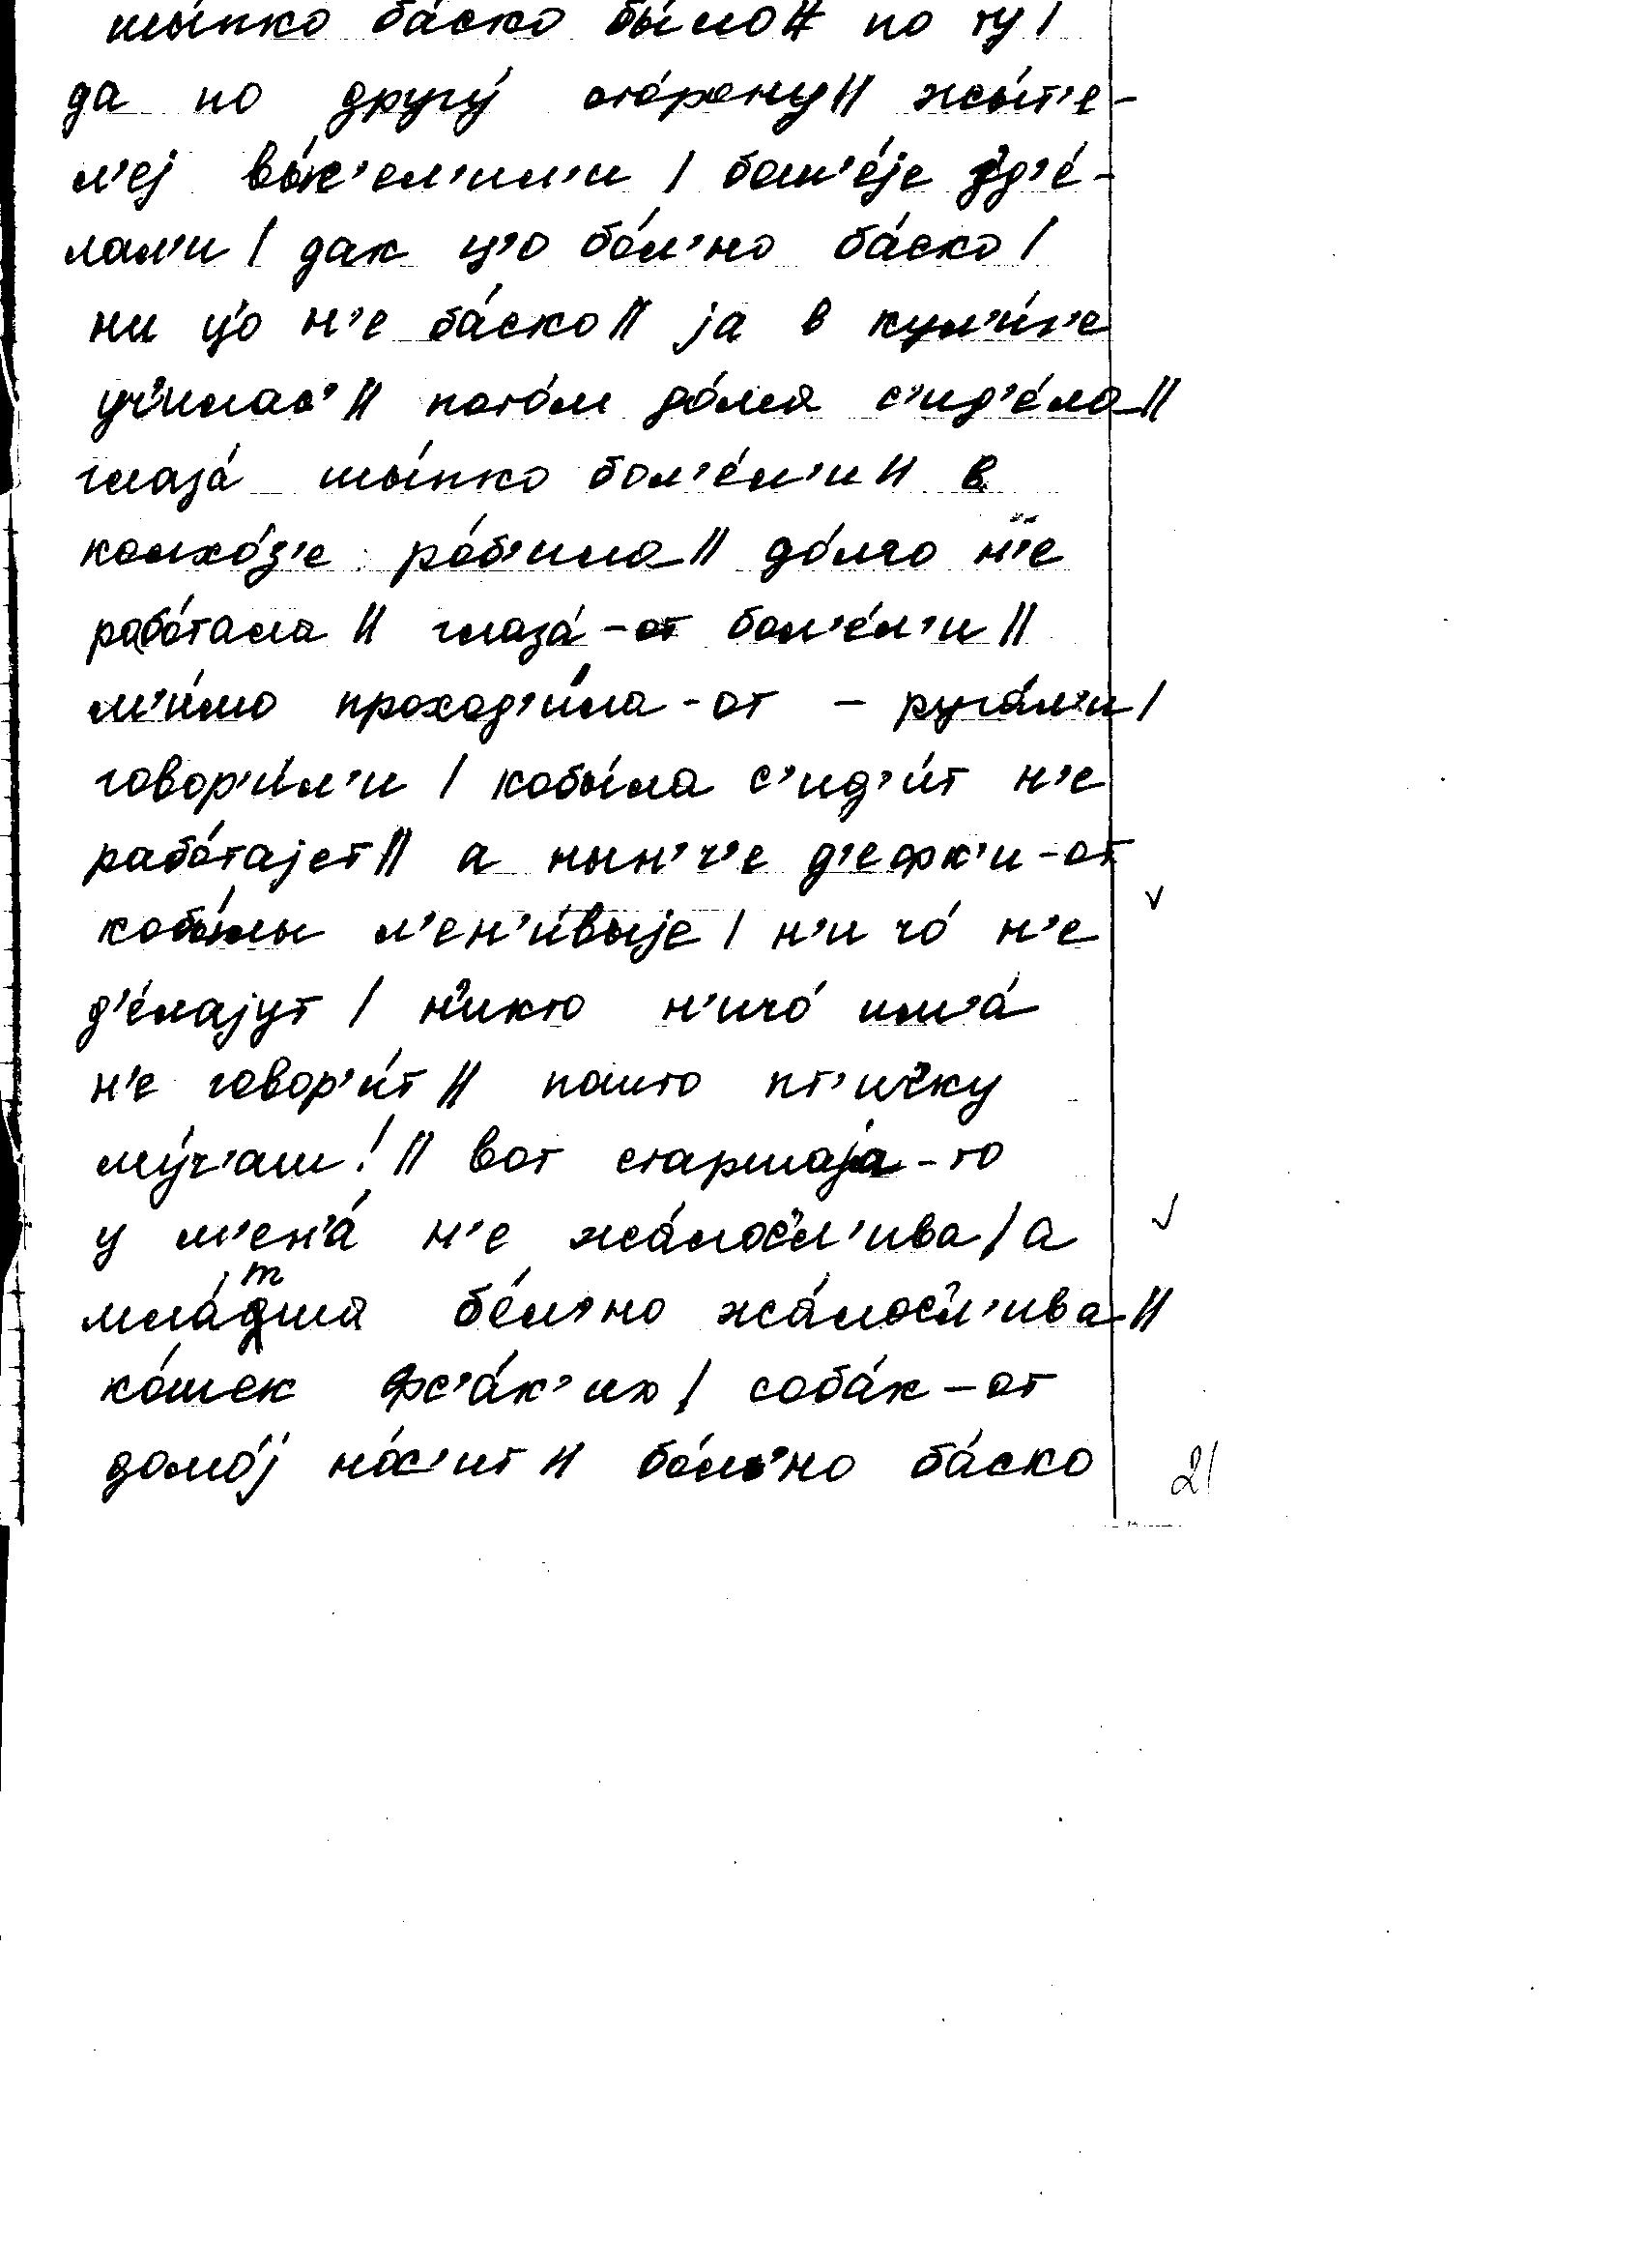 шы́пко ба́ско бы́ло // по ту /
да по другу́ сто́рону // жы́т'е-
л'еj вы́с'ел'ил'и / бол'е́jе зд'е́-
лал'и / дак ц'о бо́л'но ба́ско /
ни ц'о н'е ба́ско // jа в кул'и́г'е
уч'илас' // пото́м до́ма с'ид'е́ла //
глаза́ шы́пко бол'е́л'и // в
колхо́з'е ро́б'ила // до́лго н'е
рабо́тала // глаза́-от бол'е́л'и //
м'и́мо проход'и́ла-от – руга́л'и /
говор'и́л'и / кобы́ла с'ид'и́т н'е
рабо́таjет // а нын'ч'е д'ефк'и-от
кобы́лы л'ен'и́выjе / н'и чо́ н'е
д'е́лаjут / н'икто н'ичо́ им'а́
н'е говор'и́т // пошто пт'ичку
му́ч'аш! // вот старшаjа-то
у м'ен'а́ н'е жа́лос'л'ива / а
мла́дша бо́л'но жа́лос'л'ива //
т
ко́шек фс'а́к'их / соба́к-от
домо́j но́с'ит // бо́л'но ба́ско
21